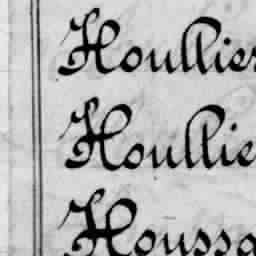 Houllier
Houllie
Houssa